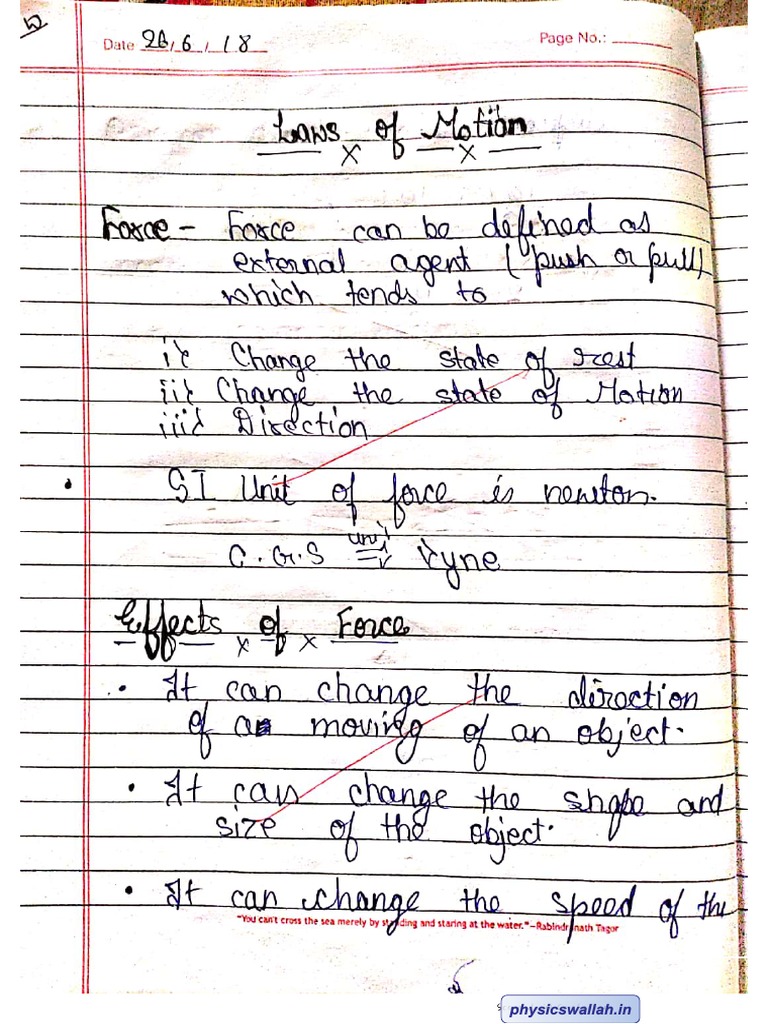 Date 26/6/18 Page No.:
Laws of Motion
Force - Force can be defined as
external agent (push or pull)
which tends to
i} Change the state of rest
ii} Change the state of Motion
iii} Direction
• SI Unit of force is newton.
C.G.S unit dyne
Effects of Force
• It can change the direction
of a moving of an object.
• It can change the shape and
size of the object.
• It can change the speed of the
"You can't cross the sea merely by standing and staring at the water."-Rabindranath Tagor
physicswallah.in